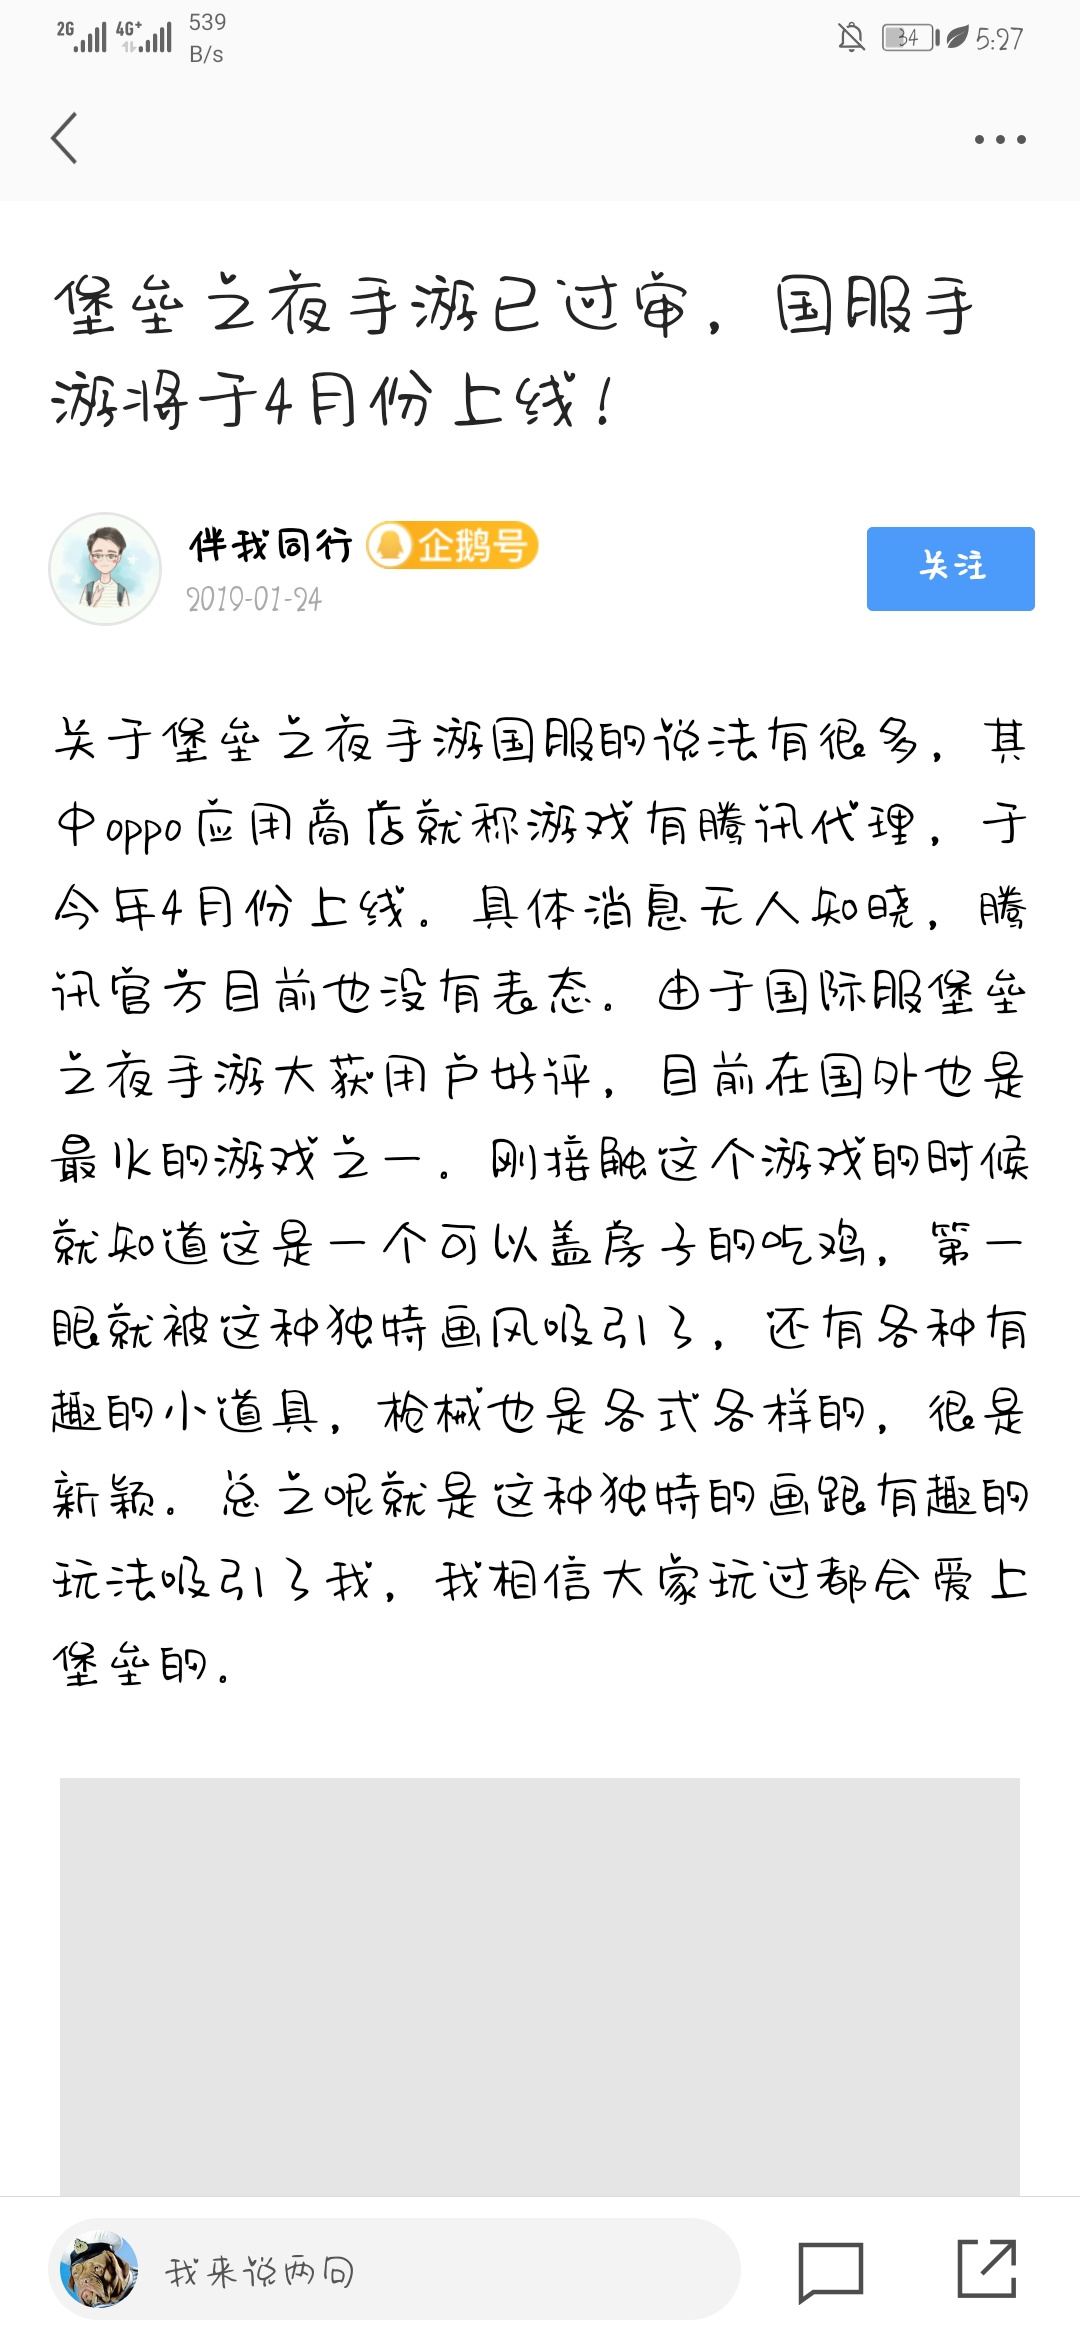 2G 4G+ 539 B/s 34 5:27
堡垒之夜手游已过审，国服手
游将于4月份上线！
伴我同行 企鹅号
2019-01-24
关注
关于堡垒之夜手游国服的说法有很多，其
中oppo应用商店就称游戏有腾讯代理，于
今年4月份上线。具体消息无人知晓，腾
讯官方目前也没有表态。由于国际服堡垒
之夜手游大获用户好评，目前在国外也是
最火的游戏之一。刚接触这个游戏的时候
就知道这是一个可以盖房子的吃鸡，第一
眼就被这种独特画风吸引了，还有各种有
趣的小道具，枪械也是各式各样的，很是
新颖。总之呢就是这种独特的画跟有趣的
玩法吸引了我，我相信大家玩过都会爱上
堡垒的。
我来说两句